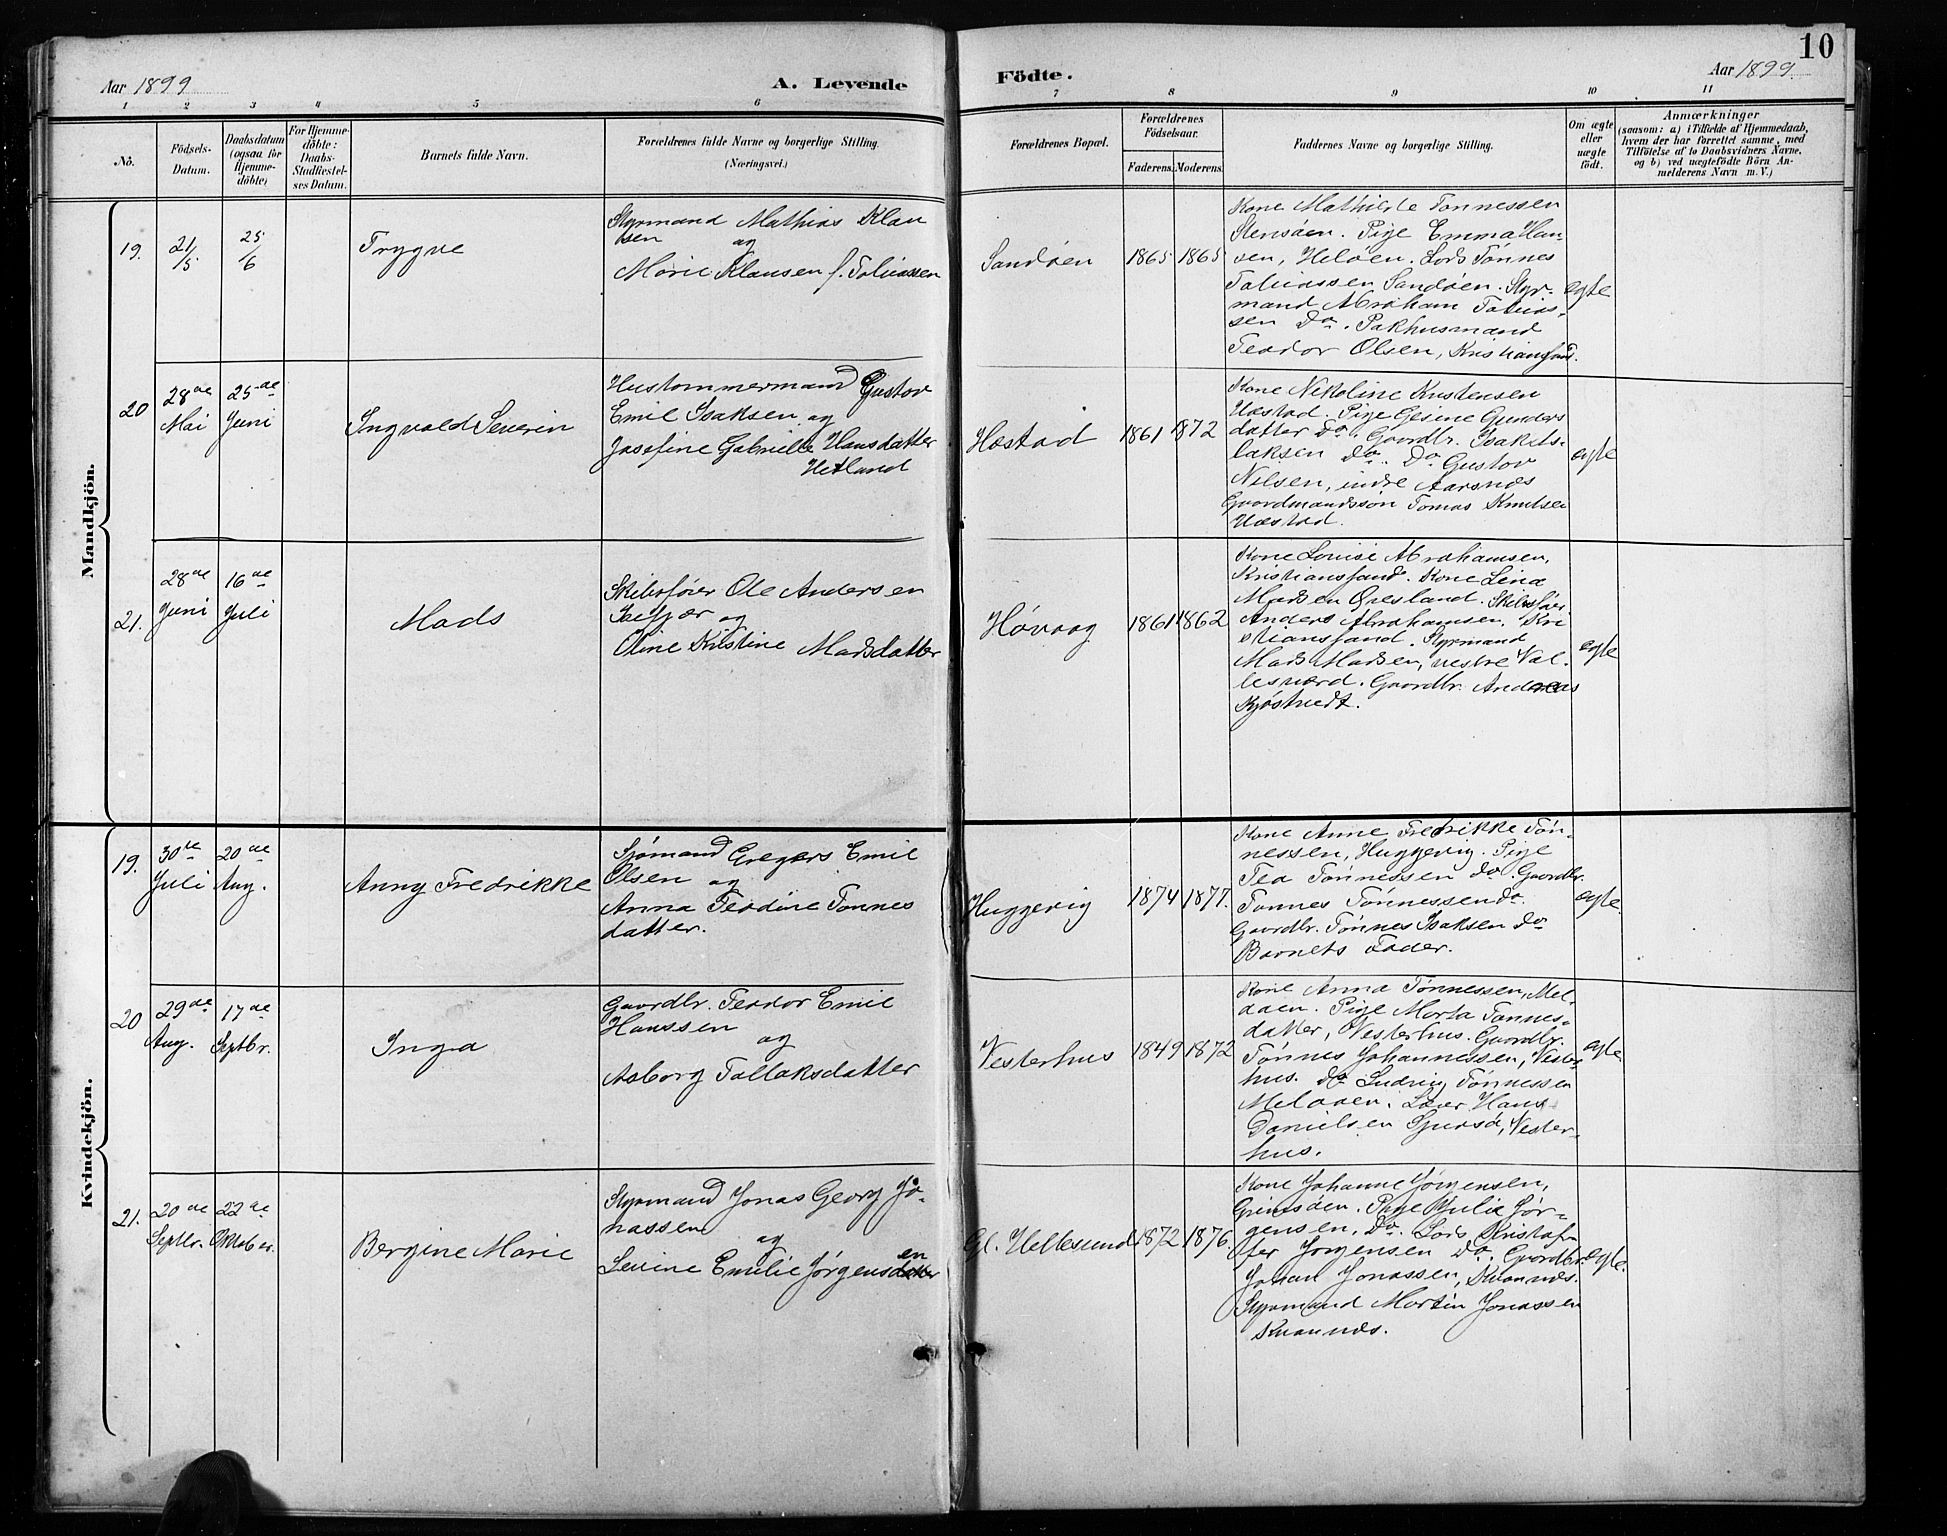 10
Aar 1899
A. Levende
Födte.
Aar 1899.
1 2 3 4 5 6 7 8 9 10 11
No.
Födsels-
Datum.
Daabsdatum
(ogsaa for
Hjemme-
döbte)
For Hjemme-
döbte:
Daabs-
Stadfæstel-
ses Datum.
Barnets fulde Navn.
Forældrenes fulde Navne og borgerlige Stilling.
(Næringsvei.)
Forældrenes Bopæl.
Forældrenes
Födselsaar.
Faderens.
Moderens.
Faddernes Navne og borgerlige Stilling.
Om ægte
eller
uægte
födt.
Anmærkninger
(saasom: a) i Tilfælde af Hjemmedaab,
hvem der har forrettet samme, med
Tilföielse af to Daabsvidners Navne,
og b) ved uægtefödte Börn An-
melderens Navn m. V.)
Mandkjön.
19.
21/5
25/6
Trygve
Styrmand Mathias Klau
sen og
Marie Klausen f. Tobiassen
Sandøen
1865
1865
Kone Mathilde Tønnessen
Stensøen. Pige Emma Han-
sen, Heløen. Lods Tønnes
Tobiassen Sandøen. Styr-
mand Abraham Tobias-
sen Do. Pakhusmand
Teodor Olsen, Kristiansand.
egte
20
28de
Mai
25de
Juni
Ingvald Severin
Hustømmermand Gustav
Emil Isaksen og
Josefine Gabrielle Hansdatter
Hetland
Hæstad
1861
1872
Kone Nikoline Kristensen
Hæstad. Pige Gesine Gunders
datter Do. Gaardbr. Isak Is-
aksen Do. Do Gustav
Nilsen, indre Aarsnæs
Gaardmandssøn Tomas Knutsen
Hæstad.
egte
21.
28de
Juni
16de
Juli
Mads
Skibsfører Ole Andersen
og
Oline Kristine Madsdatter
Høvaag
1861
1862
Kone Louise Abrahamsen,
Kristianssand. Kone Lina
Madsen Øresland. Skibsfør.
Anders Abrahamsen, Kri
stianssand. Styrmand
Mads Madsen, vestre Val-
lesværd. Gaardbr. Andreas
Kjøstvedt.
egte
Kvindekjön.
19.
30te
Juli
20de
Aug.
Anny Fredrikke
Sjømand Gregers Emil
Olsen og
Anna Teodine Tønnes
datter.
Huggevig
1874
1877.
Kone Anne Fredrikke Tøn-
nessen, Huggevig. Pige
Tea Tønnessen do. Gaardbr.
Tønnes Tønnessen do.
Gaardbr. Tønnes Isaksen Do
Barnets Fader.
egte.
20
29de
Aug.
17de
Septbr.
Inga
Gaardbr. Teodor Emil
Hanssen
og
Aasborg Tallaksdatter
Vesterhus
1849
1872
Kone Anna Tønnessen, Mel-
daen. Pige Marta Tønnes-
datter, Vesterhus. Gaardbr.
Tønnes Johannessen, Vester-
hus. Do Ludvig Tønnessen
Hans
Danielsen Vester-
hus.
egte
21.
20de
Septbr.
22de
Oktober.
Bergine Marie
Styrmand Jonas Georg Jo-
nassen
og
Severine Emilie Jørgensen
Gl. Hellesund
1872
1876.
Kone Johanne Jørgensen,
Grimsøen. Pige Julia Jør-
gensen, Do. Lods Kristof-
fer Jørgensen Do. Gaardbr.
Johan Jonassen, Kvannæs.
Styrmand Martin Jonassen
Kvannæs.
egte.